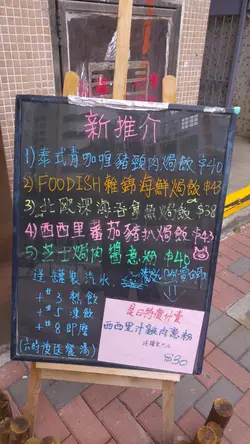 新推介
1) 泰式青咖喱豬頸肉焗飯 $40
2) FOODISH雜錦海鮮焗飯 $43
3) 北歐深海吞魚焗飯 $38
4) 西西里番茄豬扒焗飯 $43
5) 芝士焗肉醬意粉 $40
送 護裝汽水
+$3 熱飲
+$5 凍飲
+$8 即磨
(六時後送餐湯)
是日特價外賣
西西里汁雞肉意粉
$30